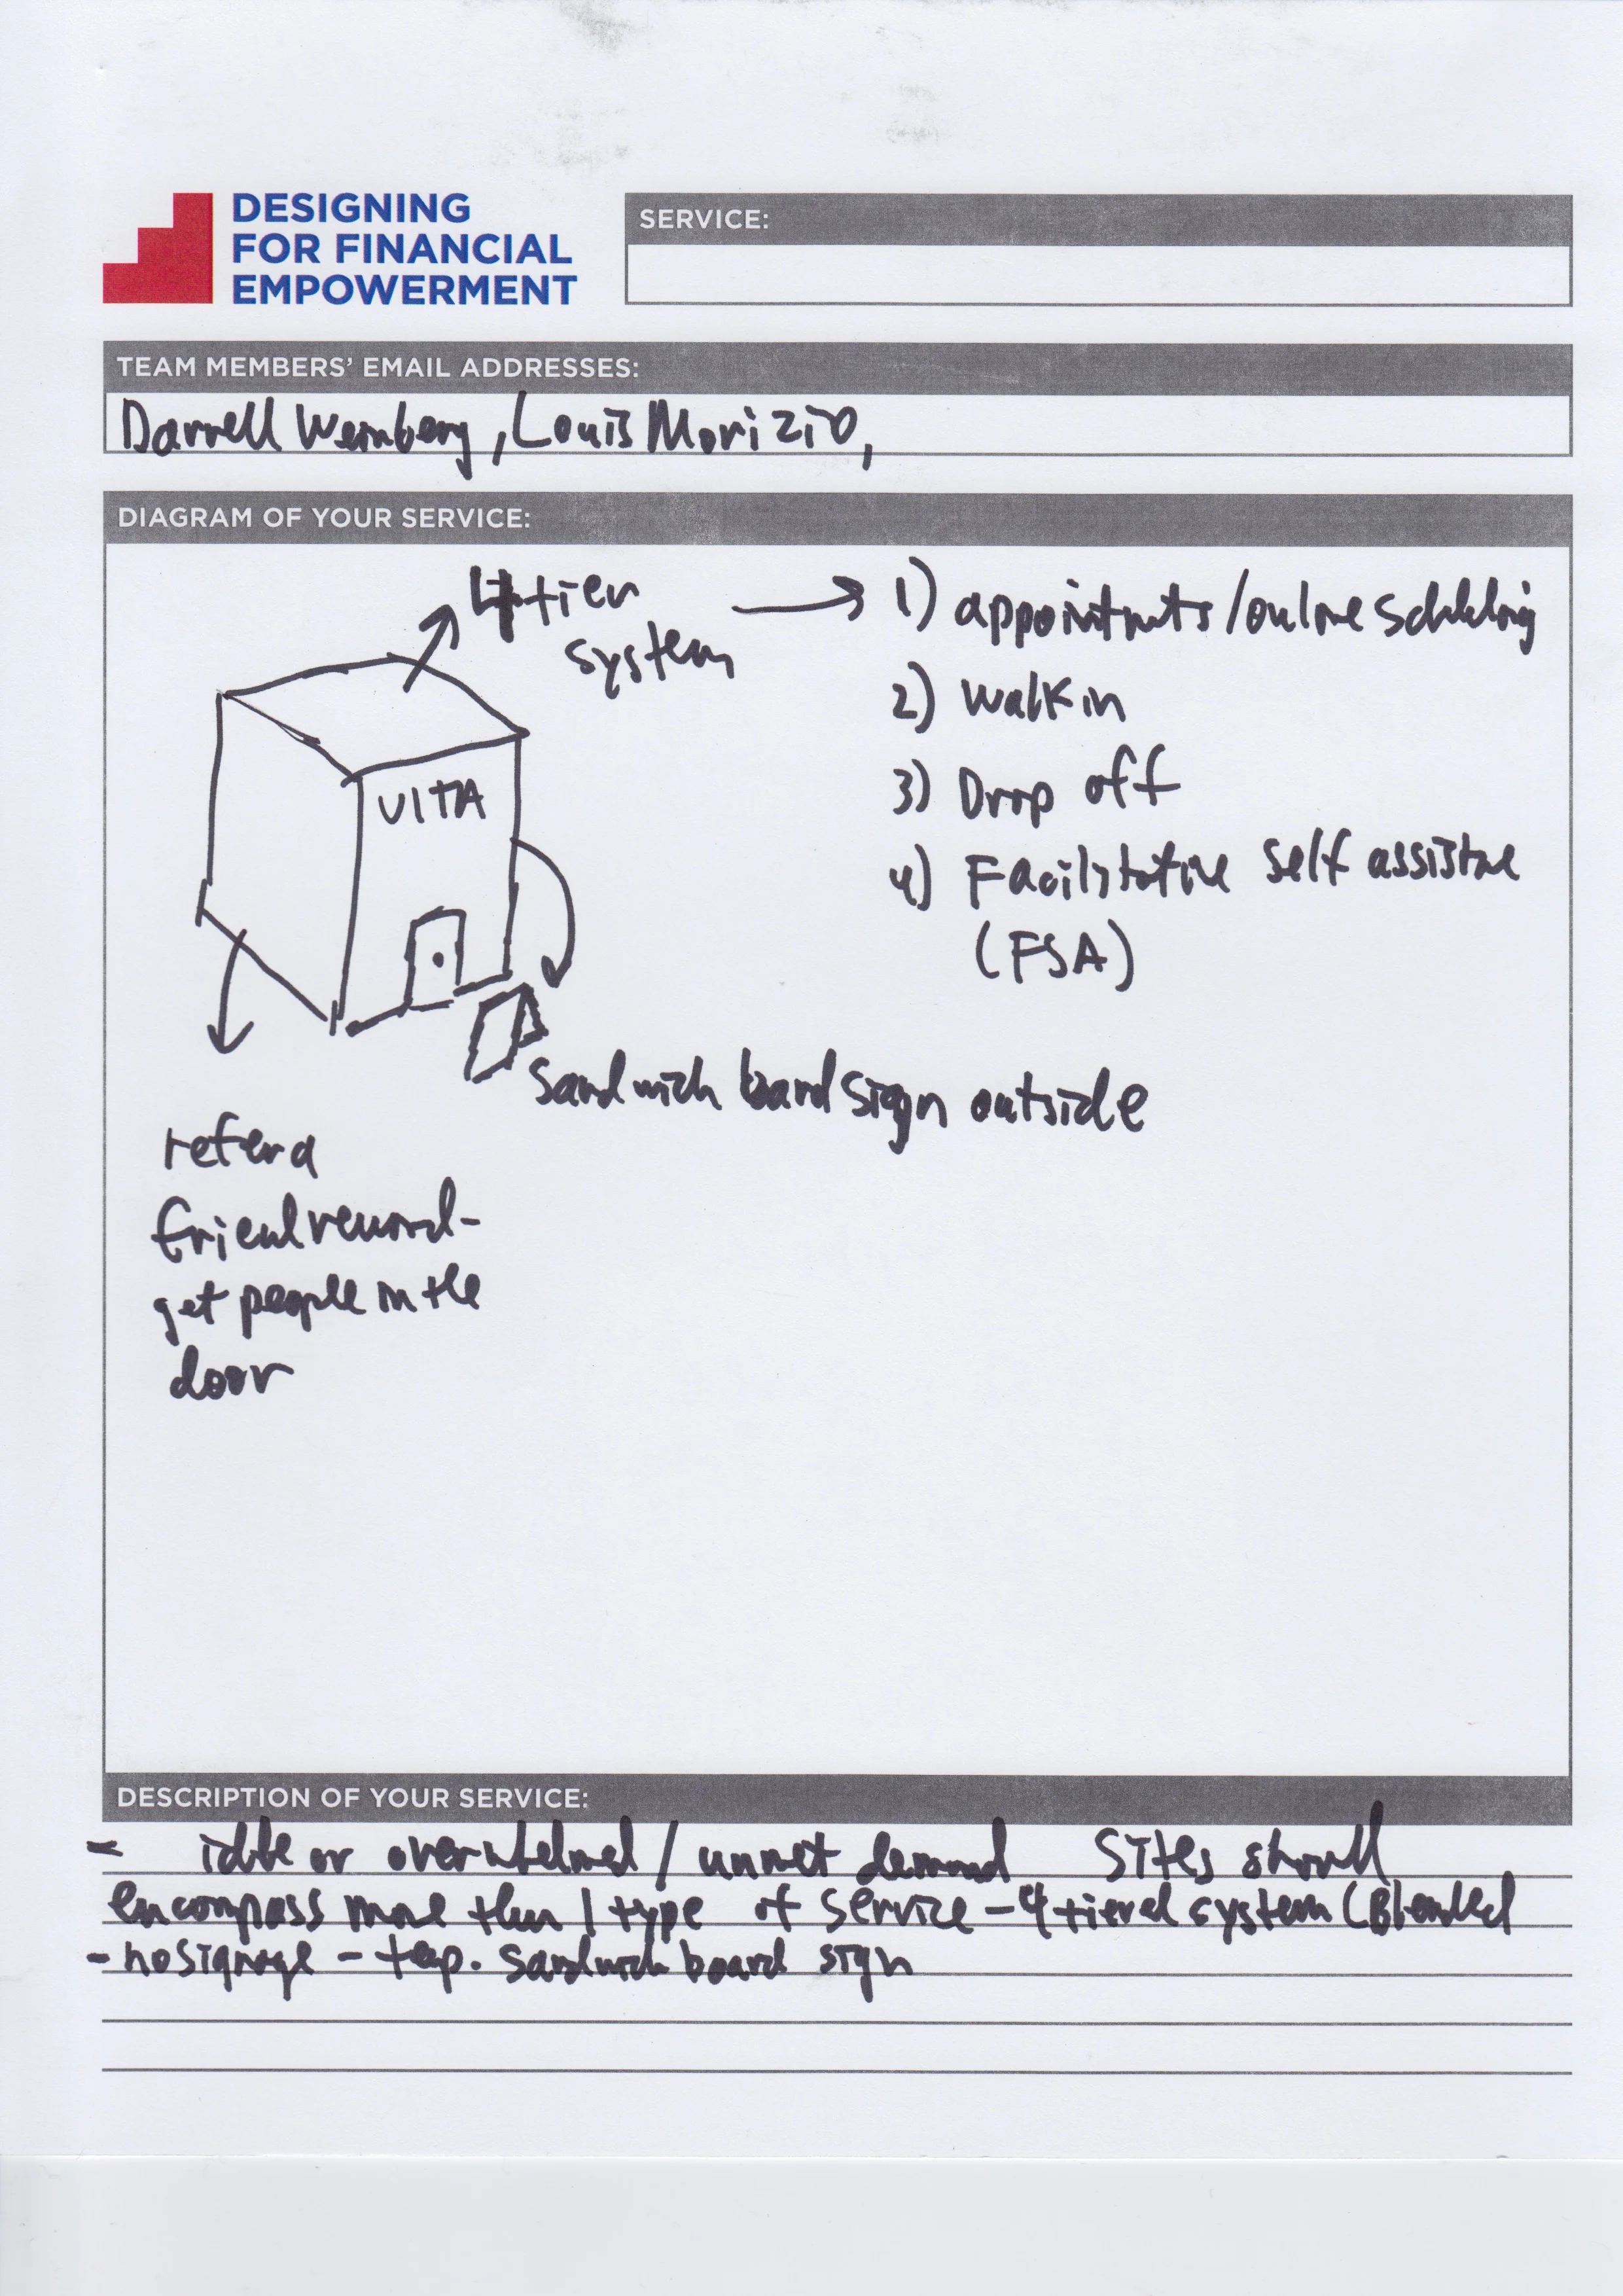 DESIGNING
FOR FINANCIAL
EMPOWERMENT
SERVICE:
TEAM MEMBERS' EMAIL ADDRESSES:
Darrell Weinberg, Louis Morizio,
DIAGRAM OF YOUR SERVICE:
4 tier
system
1) appointmnts/online scheduling
2) walk in
3) Drop off
4) Facilitative Self assistne
(FSA)
VITA
Sandwich board sign outside
refer a
friend reward-
get people in the
door
DESCRIPTION OF YOUR SERVICE:
- idle or overwhelmed / unmet demand Sites should
encompass more than 1 type of service - 4 tiered system (Blended
- no signage - temp. sandwich board sign